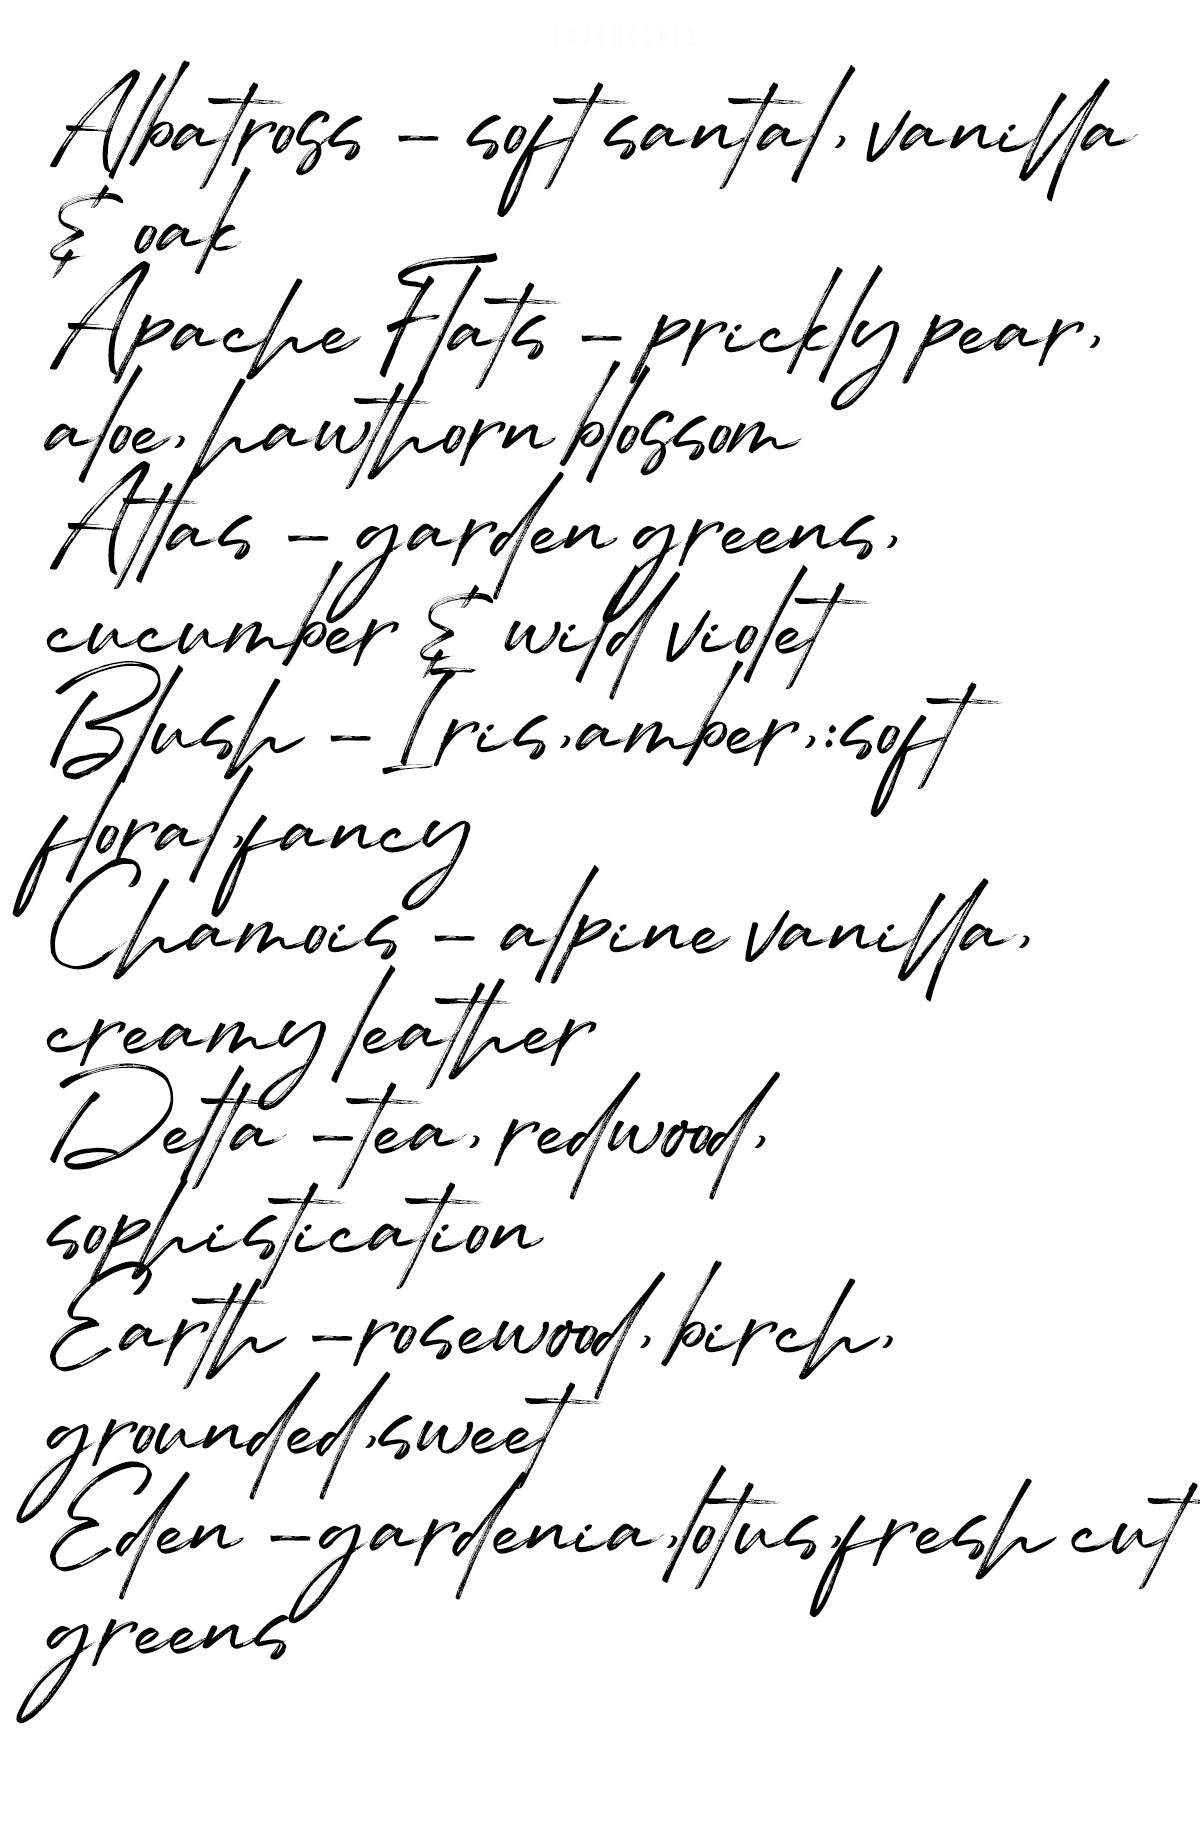 Albatross - soft santal, vanilla
& oak
Apache Flats - prickly pear,
aloe, hawthorn blossom
Atlas - garden greens,
cucumber & wild violet
Blush - Iris,amber,:soft
floral,fancy
Chamois - alpine vanilla,
creamy leather
Delta -tea, redwood,
sophistication
Earth -rosewood, birch,
grounded,sweet
Eden -gardenia,lotus,fresh cut
greens